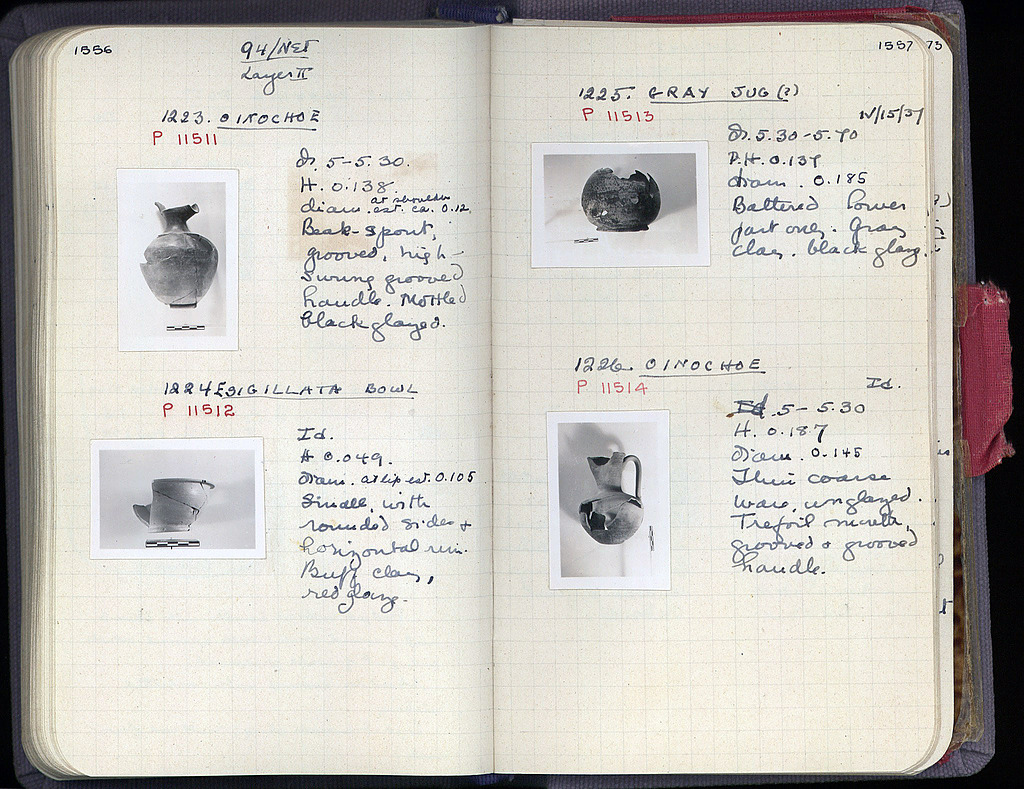 1556
94/ΝΣΤ
Layer II
1223. OINOCHOE
P 11511
Dr. 5-5.30.
H. 0.138.
at shoulder
diam. est. ca. 0.12.
Beak-spout,
grooved, high-
swung grooved
handle. Mottled
black glazed.
1224 SIGILLATA BOWL
P 11512
Id.
H 0.049.
diam. at lip est. 0.105
Small, with
rounded sides +
horizontal rim.
Buff clay,
red glaze.
1557 73
1225. GRAY JUG (?)
P 11513
IV/15/37
Dr. 5.30-5.70
P.H. 0.137
diam. 0.185
Battered lower
part only. Gray
clay. black glaze.
1226. OINOCHOE
P 11514
Id.
5-5.30
H. 0.187
Diam. 0.145
Thin coarse
ware, unglazed.
Trefoil mouth,
grooved + grooved
handle.